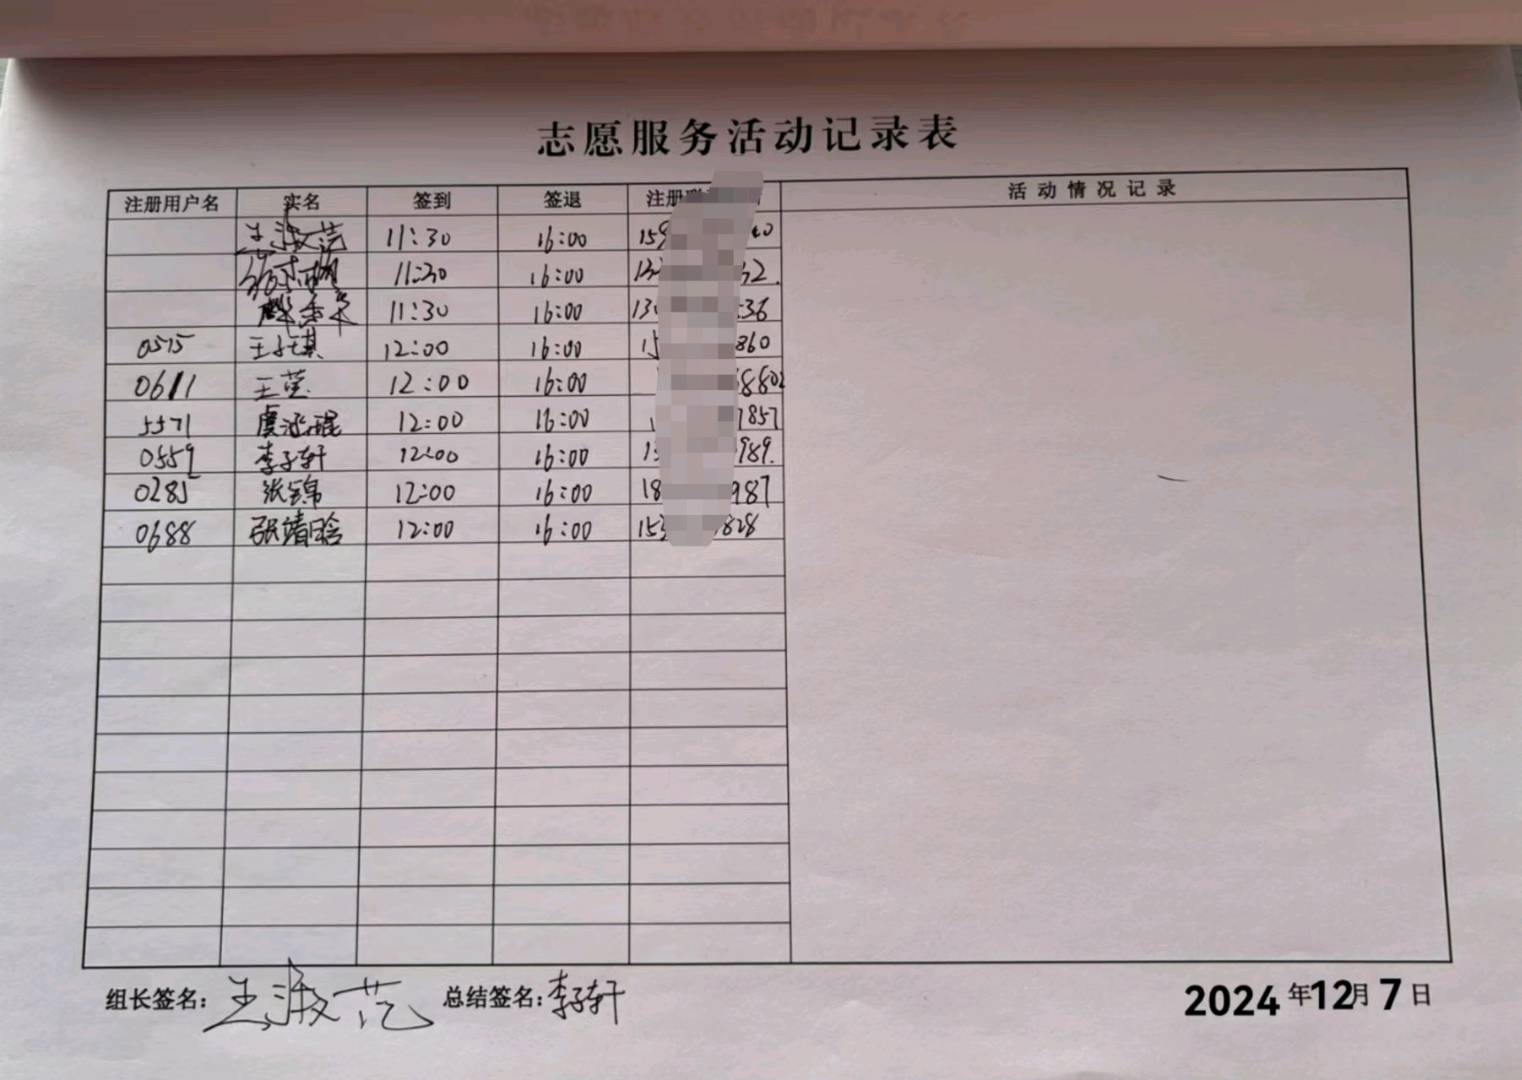 志愿服务活动记录表
注册用户名 实名 签到 签退 注册 活动情况记录
王淑范 11:30 16:00 159 40
11:30 16:00 132 32.
11:30 16:00 130 36
0575 王子琪 12:00 16:00 15 860
0611 王莹 12:00 16:00 8802
5571 12:00 16:00 1 1857
0559 李子轩 12:00 16:00 15 989.
0285 张锦 12:00 16:00 18 987
0688 张靖晗 12:00 16:00 153 828
组长签名: 王淑范 总结签名: 李子轩 2024年12月7日